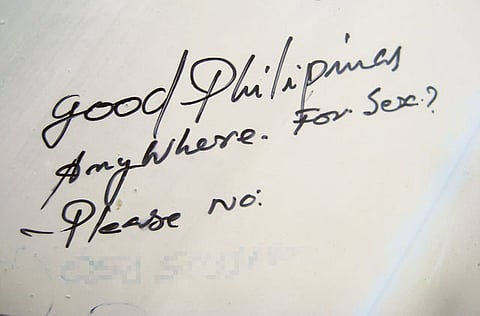 good Philipinas
AnyWhere. For Sex?
- Please No: